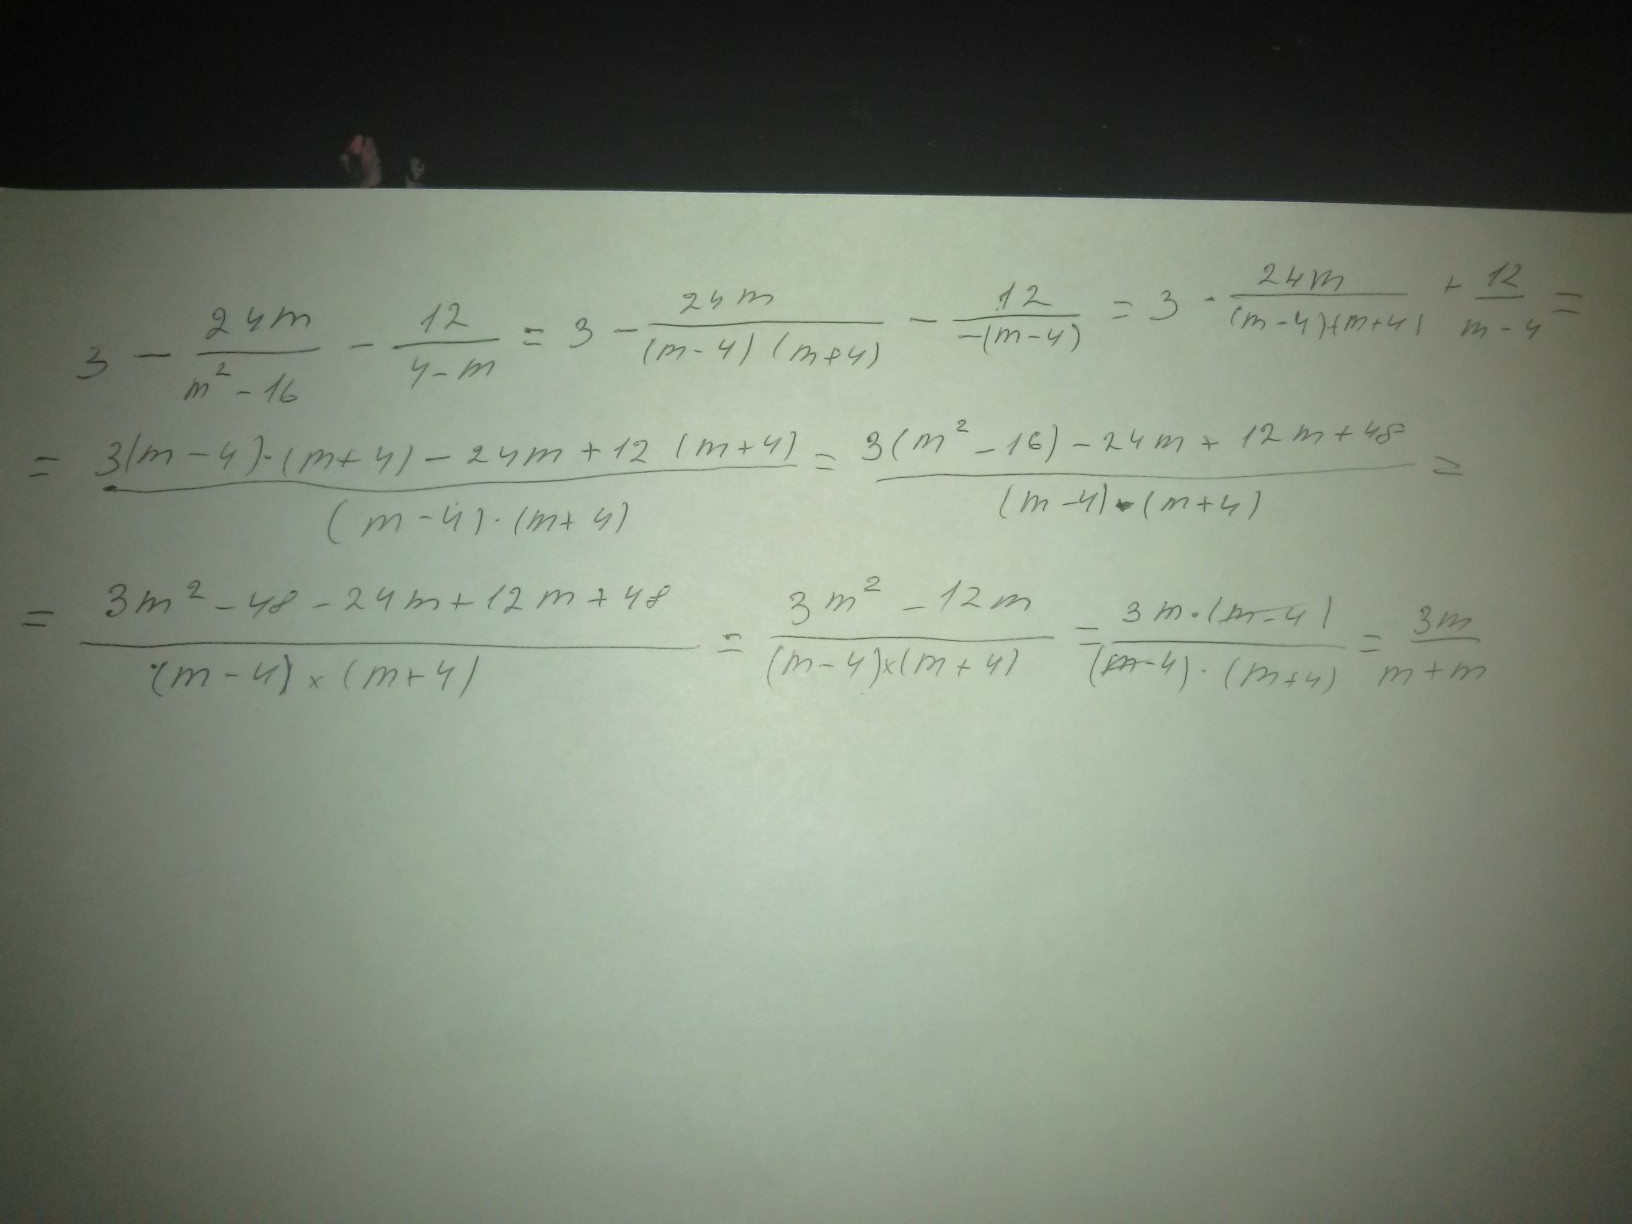 3 - 24m/(m² - 16) - 12/(4 - m) = 3 - 24m/((m - 4)(m + 4)) - 12/(-(m - 4)) = 3 - 24m/((m - 4)(m + 4)) + 12/(m - 4) =
= (3(m - 4)·(m + 4) - 24m + 12(m + 4))/((m - 4)·(m + 4)) = (3(m² - 16) - 24m + 12m + 48)/((m - 4)·(m + 4)) =
= (3m² - 48 - 24m + 12m + 48)/((m - 4)×(m + 4)) = (3m² - 12m)/((m - 4)×(m + 4)) = (3m·(m - 4))/((m - 4)·(m + 4)) = 3m/(m + m)